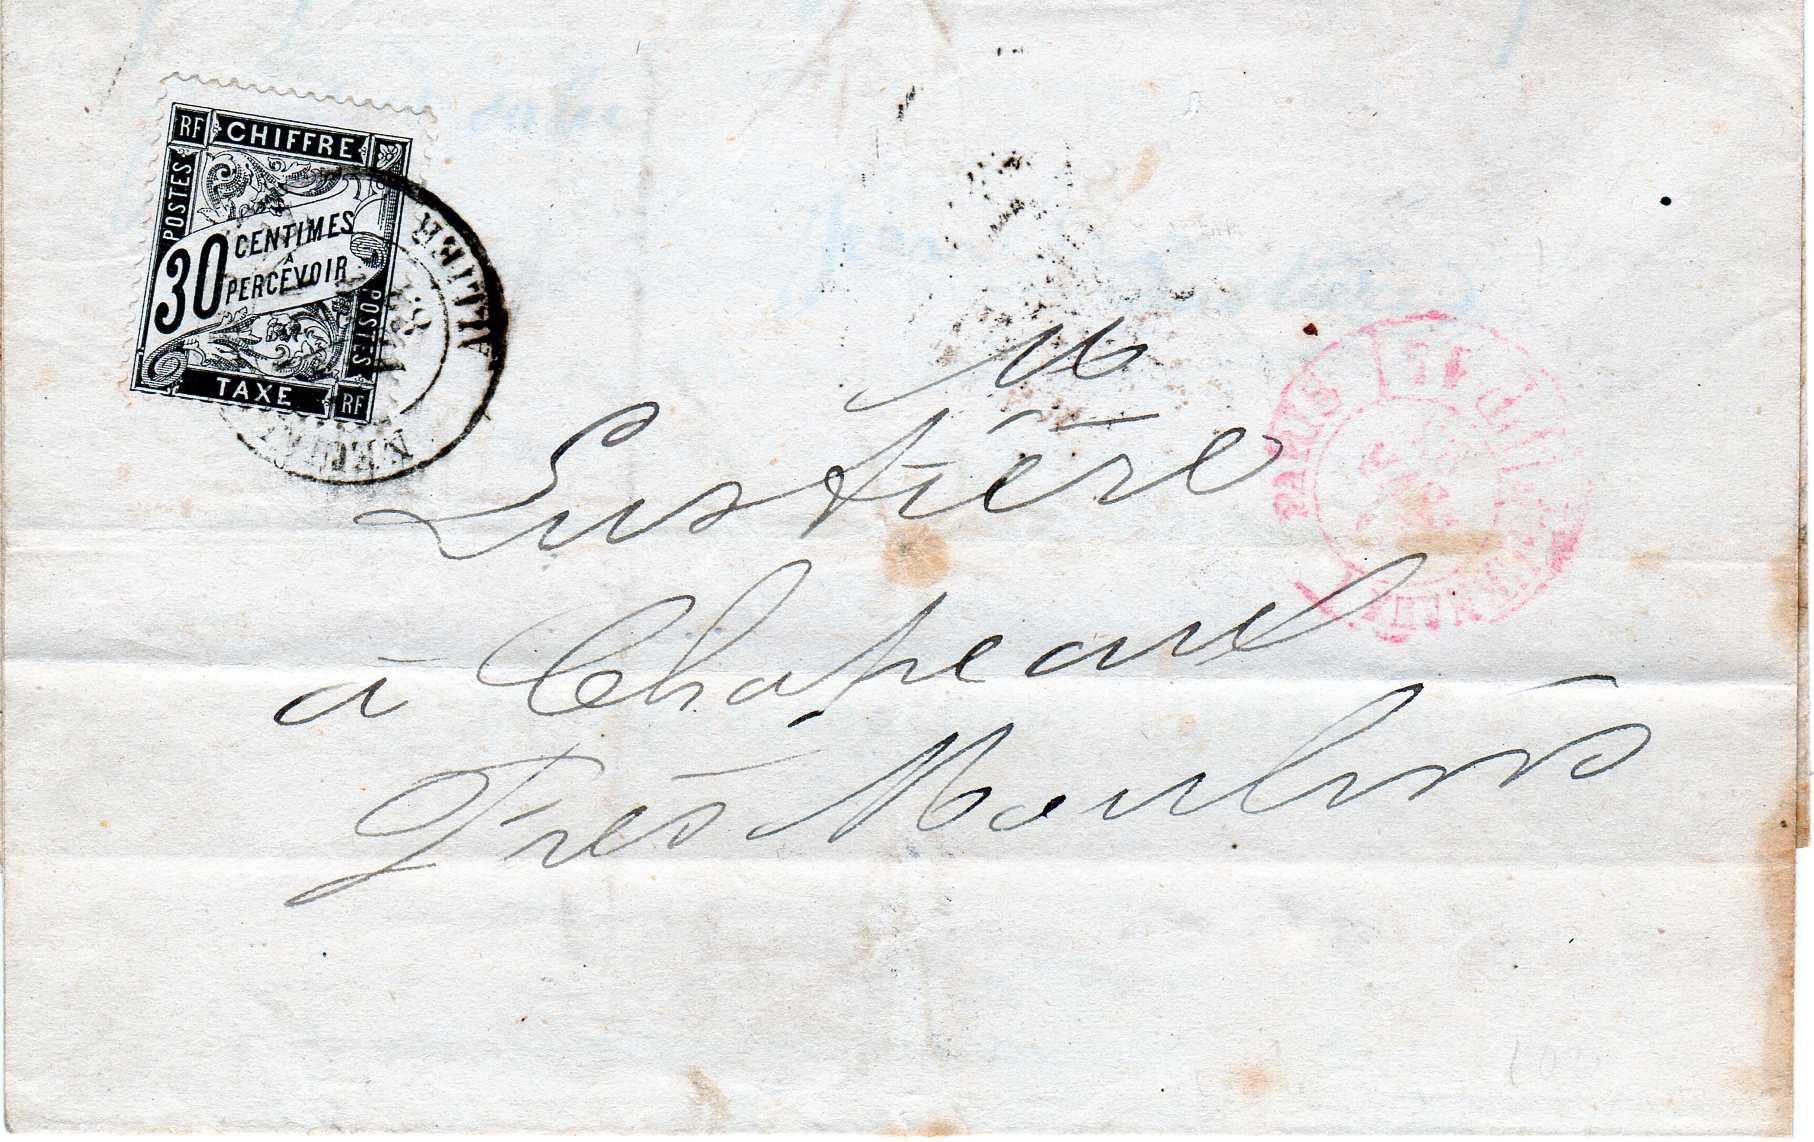 RF CHIFFRE
POSTES
30 CENTIMES
A
PERCEVOIR
POSTES
TAXE RF
ALLIER
PARIS
Mr
Lustière
à Chapeau
Près Moulins